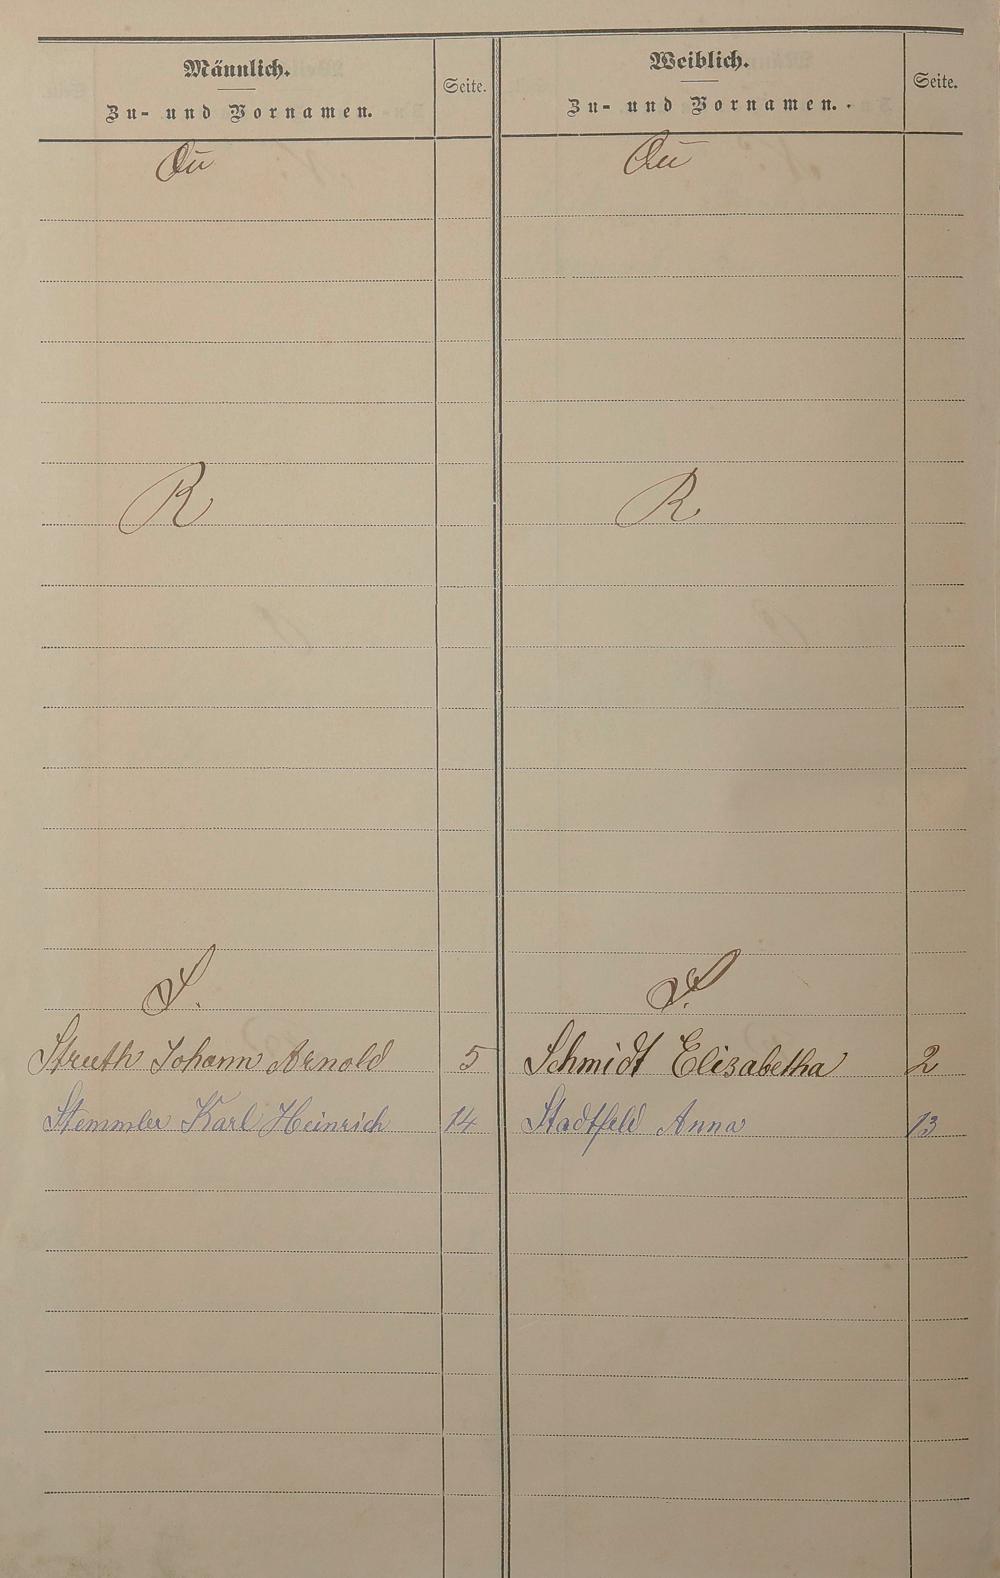 Männlich. Seite. Weiblich. Seite.
Zu- und Vornamen. Zu- und Vornamen.
Qu Qu
R R
S. S.
Struth Johann Arnold 5 Schmidt Elisabetha 2
Stemmler Karl Heinrich 14 Stadtfeld Anna 13